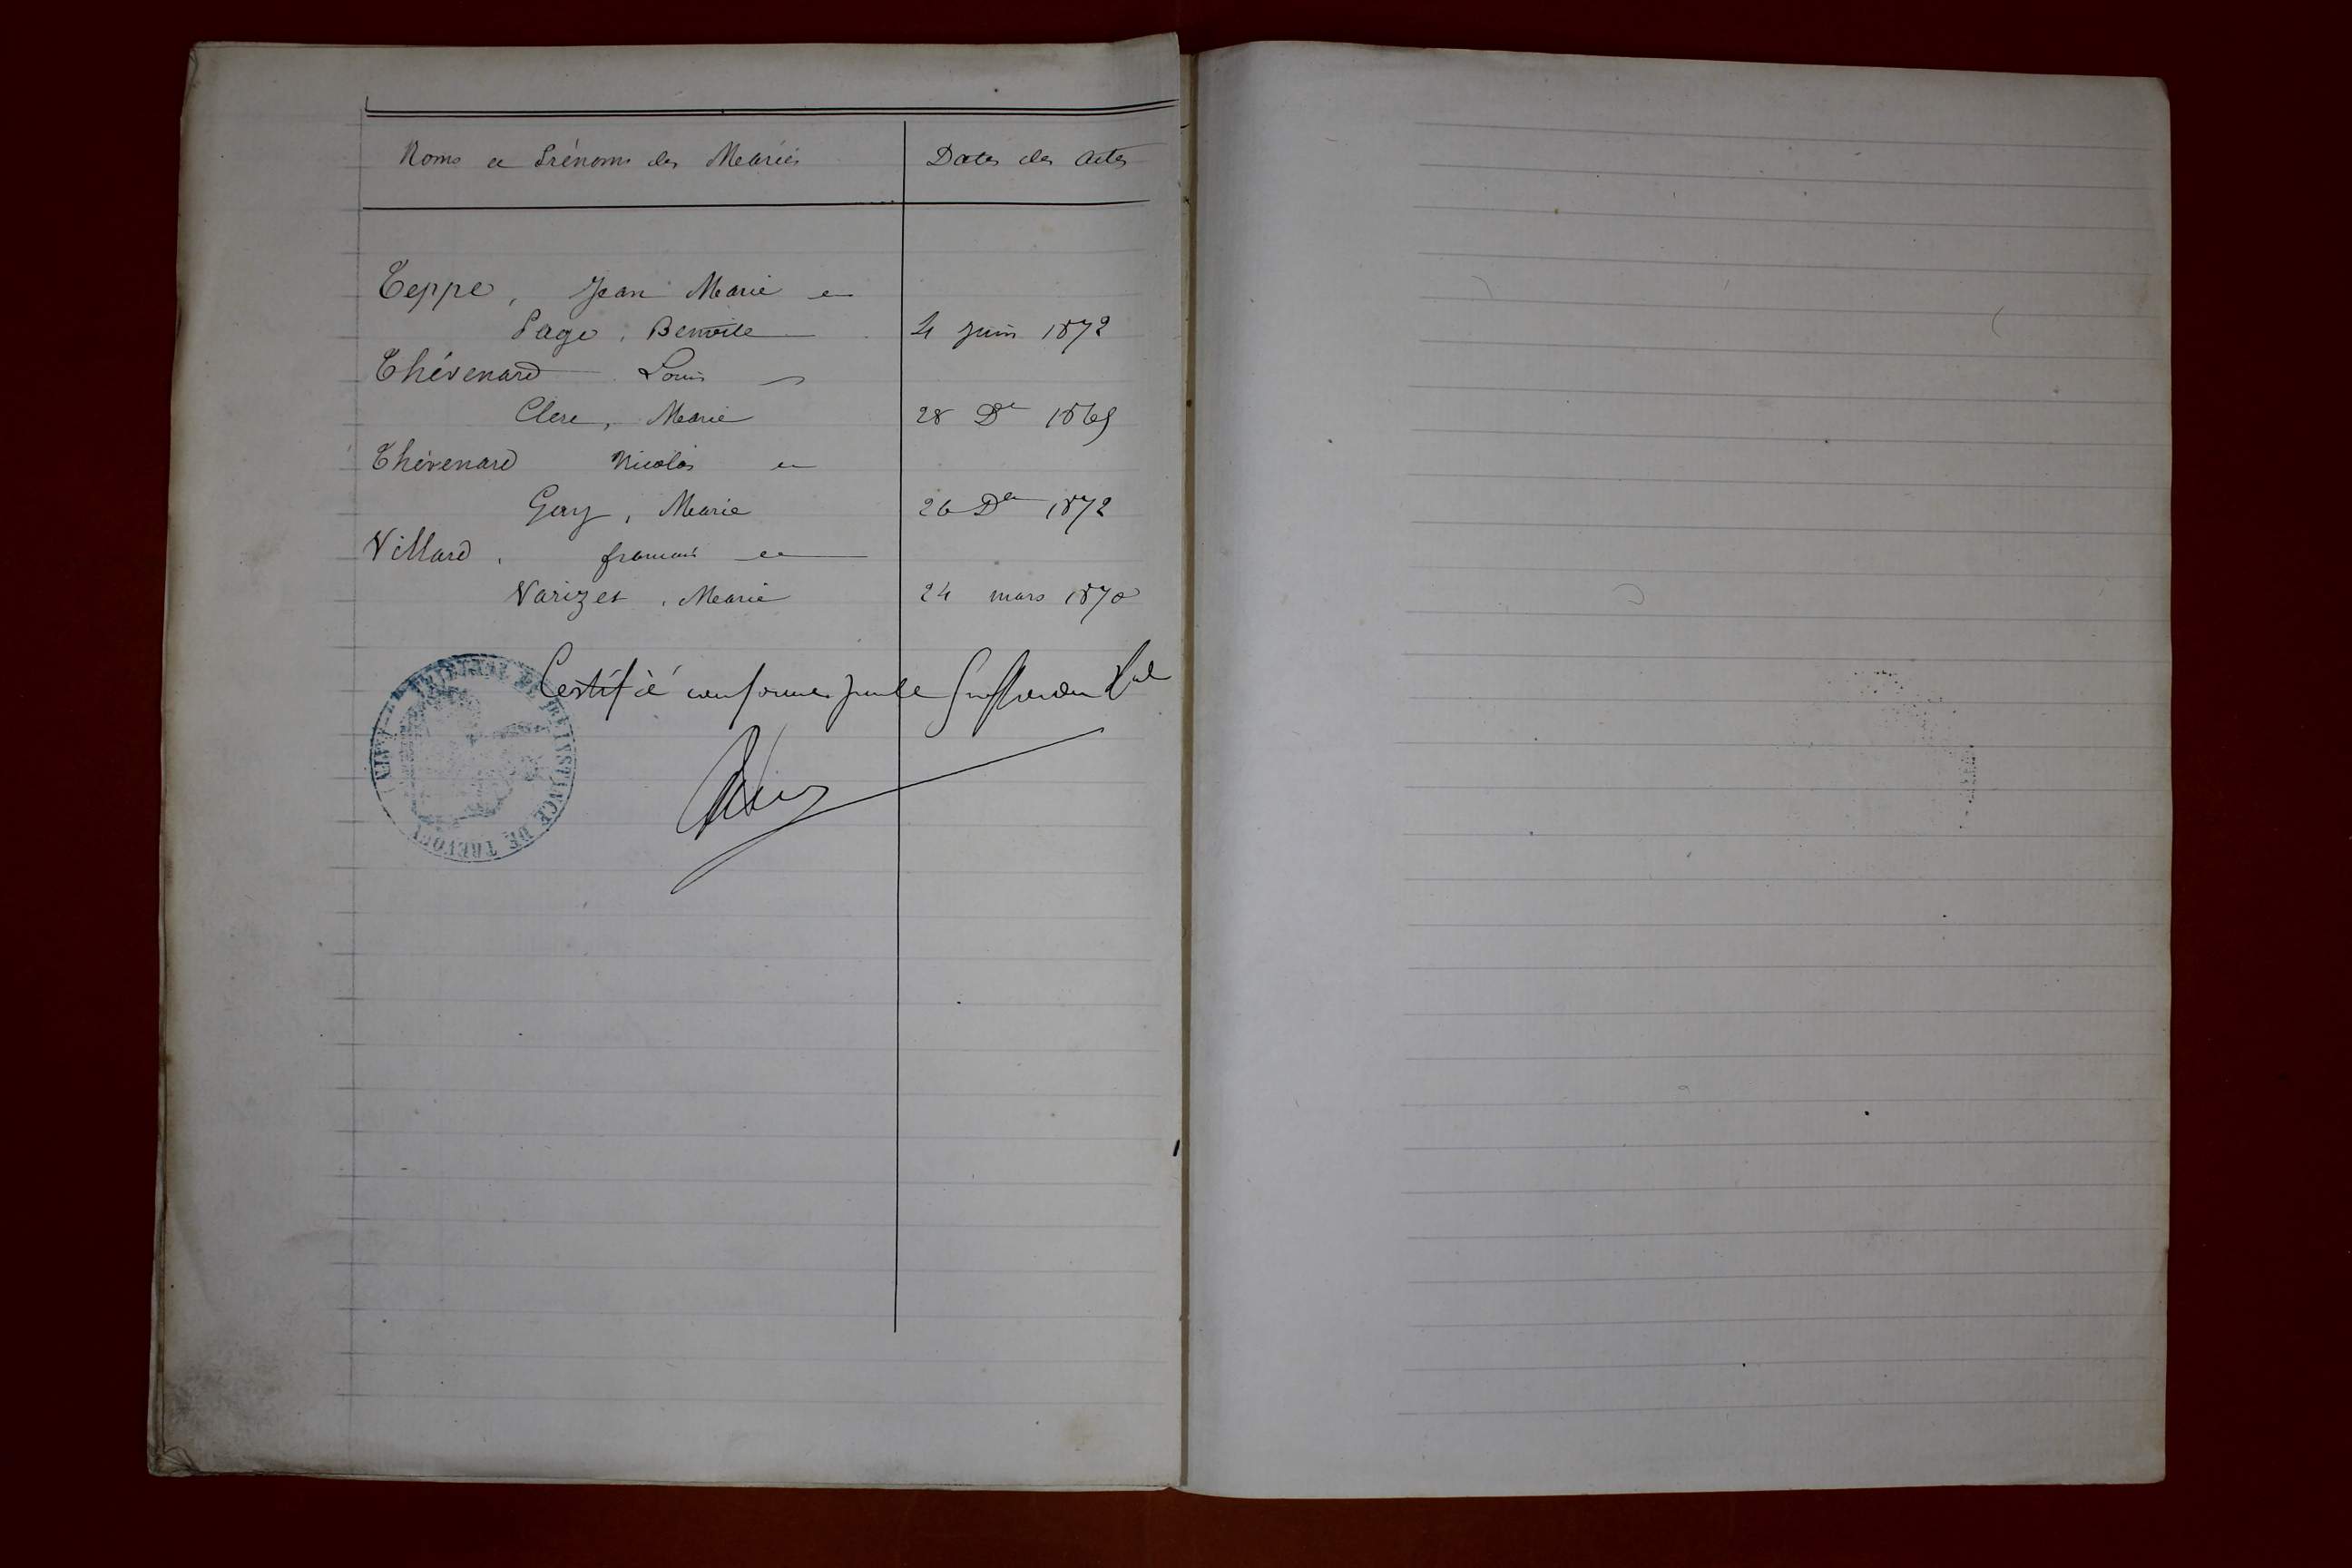 Noms et Prénoms des Mariés Dates des Actes
Teppe, Jean Marie et
Page, Benoite 4 Juin 1872
Thévenard Louis et
Clerc, Marie 28 Dre 1869
Thévenard Nicolas et
Gay, Marie 26 Dre 1872
Villard, françois et
Varizet, Marie 24 mars 1870
Certifié conforme par le Greffier du Tal
TRIBUNAL DE 1RE INSTANCE DE TREVOUX (AIN)